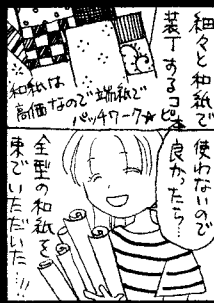 細々と和紙で
装丁するコピ本
和紙は
高価なので端紙で
パッチワーク☆
使わないので
良かったら…
全型の和紙を
束でいただいた…!!